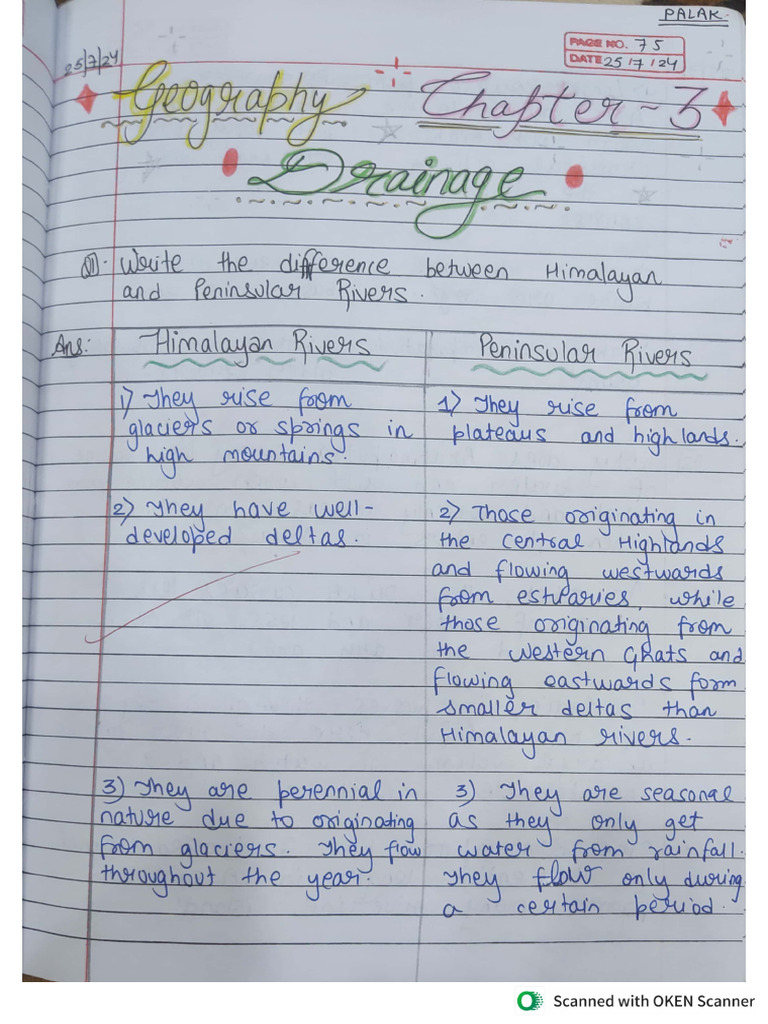 PALAK.
PAGE NO. 75
DATE 25/7/24
25/7/24
Geography Chapter - 3
Drainage
Q1. Write the difference between Himalayan
and Peninsular Rivers.
Ans: Himalayan Rivers Peninsular Rivers
1) They rise from
glaciers or springs in
high mountains.
1) They rise from
plateaus and highlands.
2) They have well-
developed deltas.
2) Those originating in
the central Highlands
and flowing westwards
from estuaries, while
those originating from
the western Ghats and
flowing eastwards form
smaller deltas than
Himalayan rivers.
3) They are perennial in
nature due to originating
from glaciers. They flow
throughout the year.
3) They are seasonal
as they only get
water from rainfall.
They flow only during
a certain period.
Scanned with OKEN Scanner